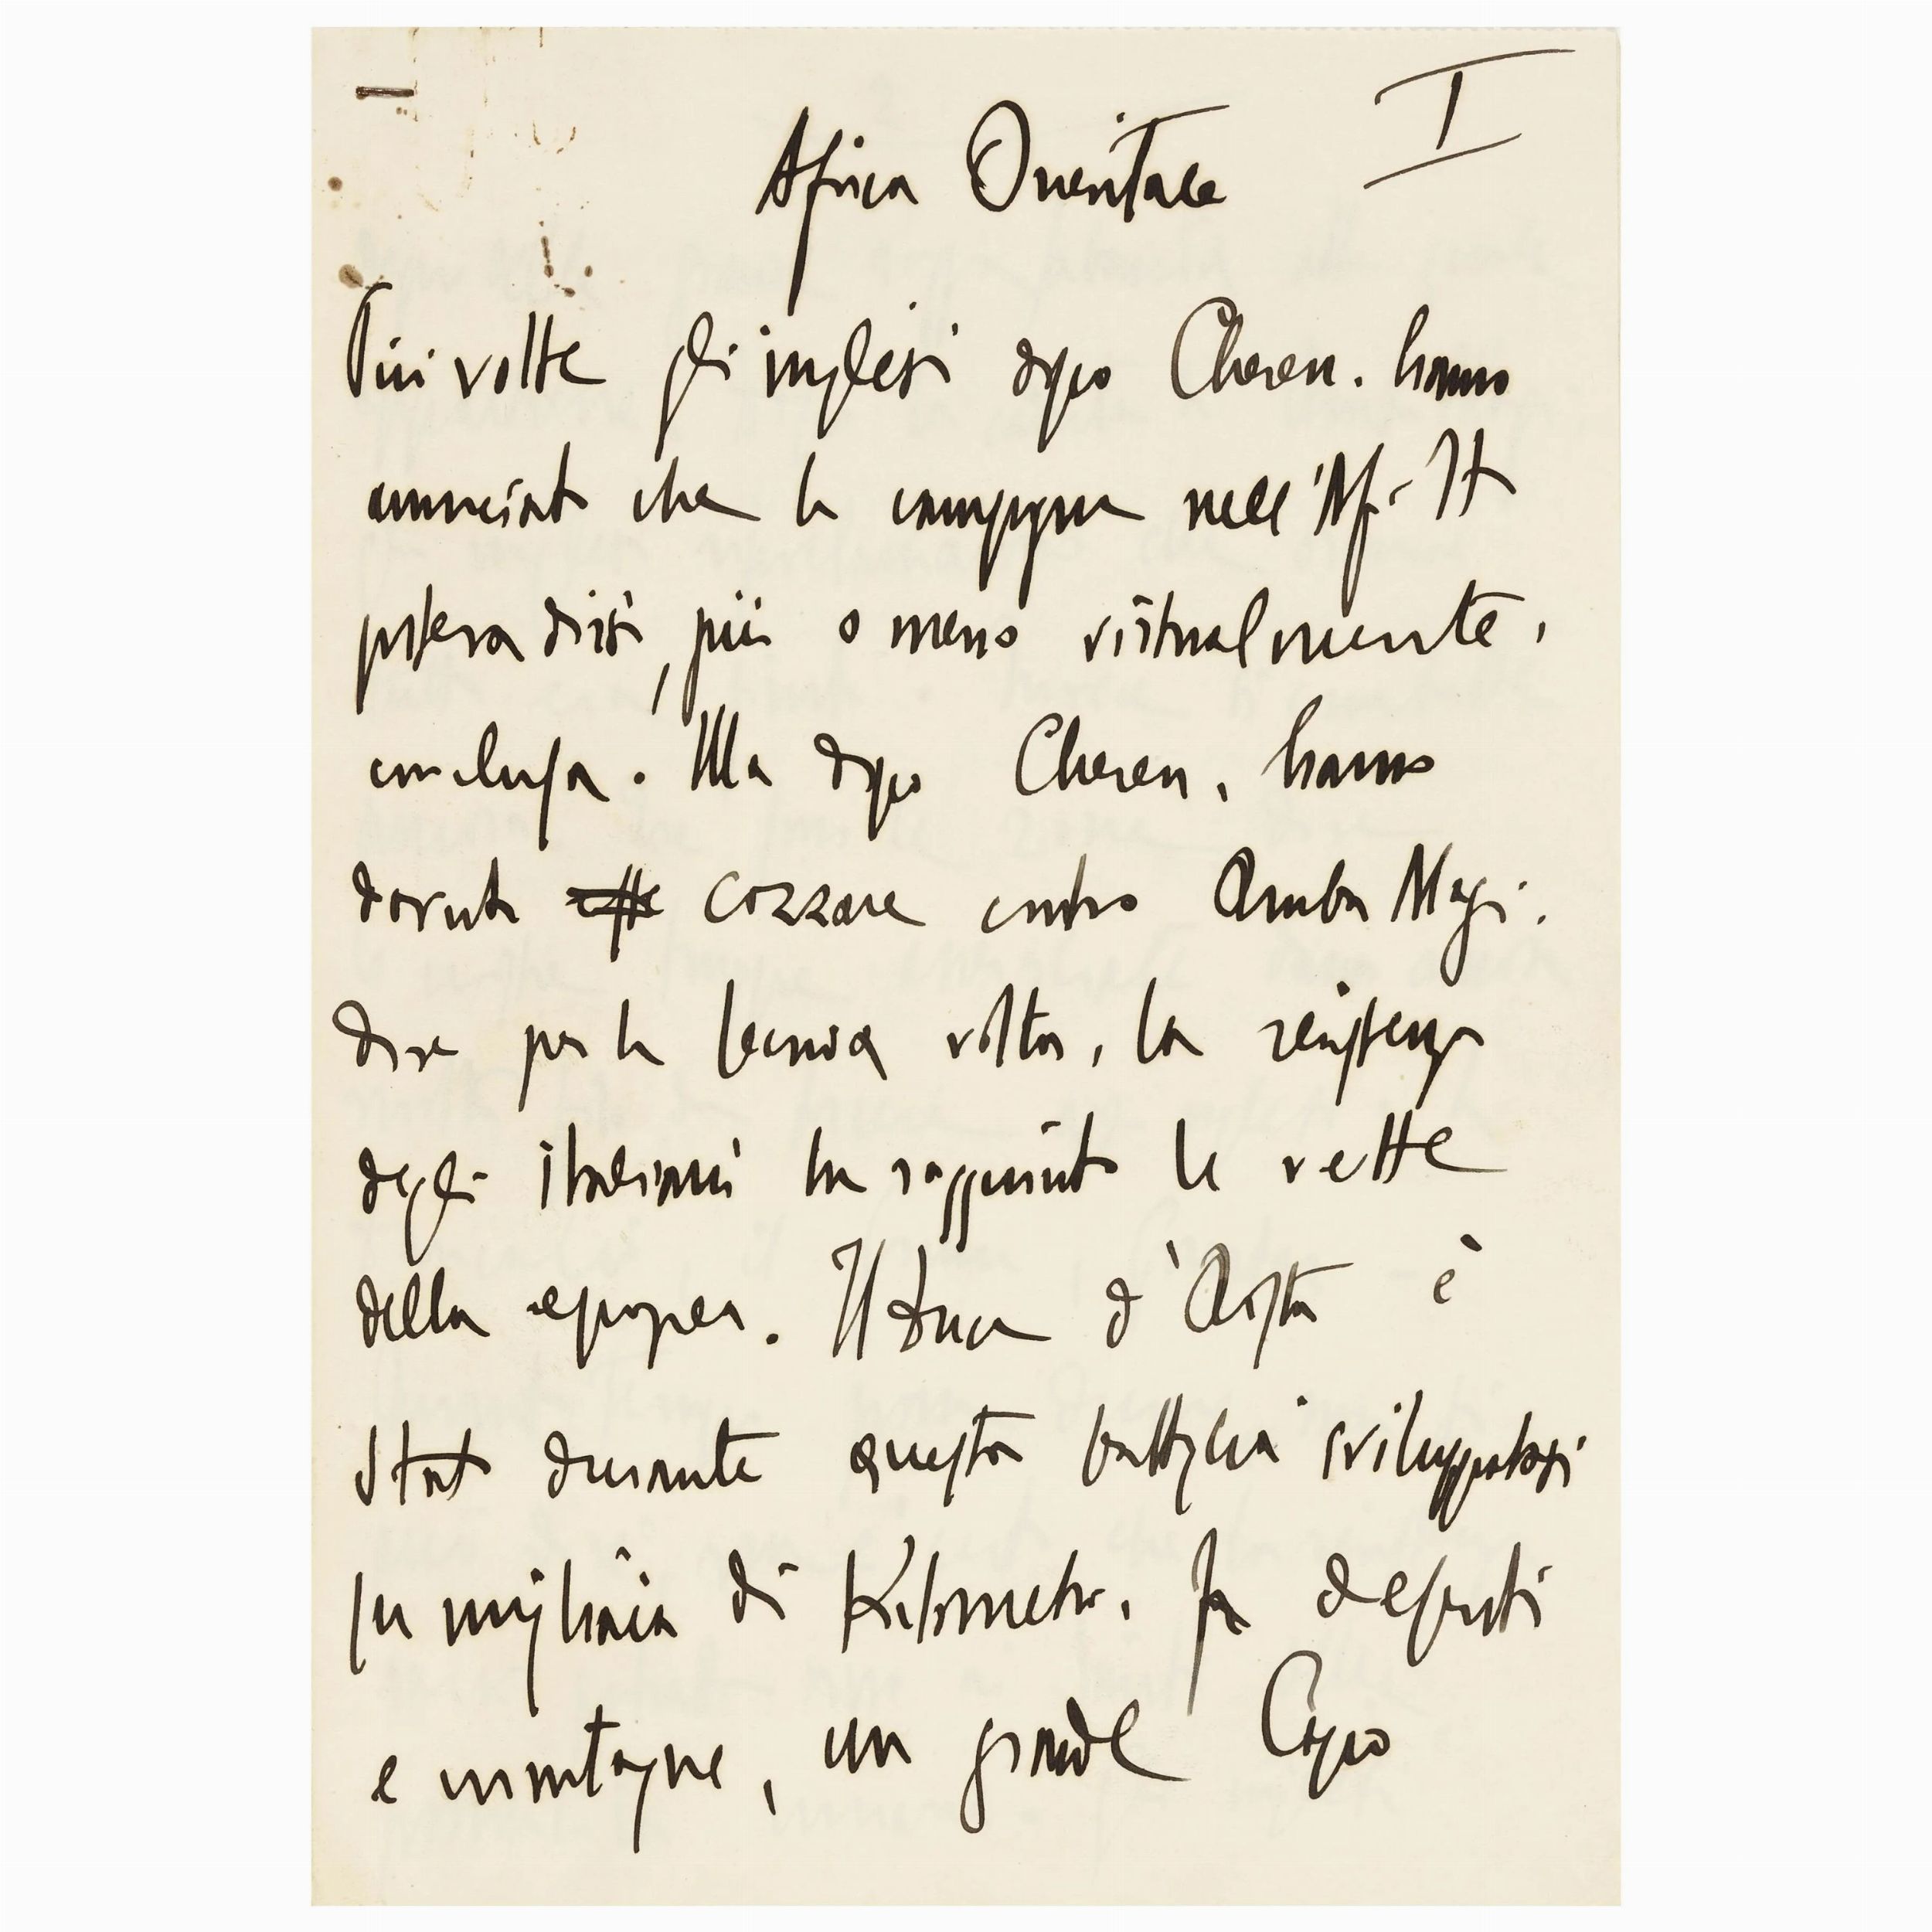 I
Africa Orientale
Più volte gli inglesi dopo Cheren. hanno
annunciato che la campagna nell'Af. It
poteva dirsi, più o meno virtualmente,
conclusa. Ma dopo Cheren, hanno
dovuto cozzare contro Amba Alagi.
dove per la seconda volta, la resistenza
degli italiani ha raggiunto le vette
della epopea. Il Duca d'Aosta è
stato durante questa battaglia sviluppatasi
su migliaia di Kilometri, fra deserti
e montagne, un grande Capo